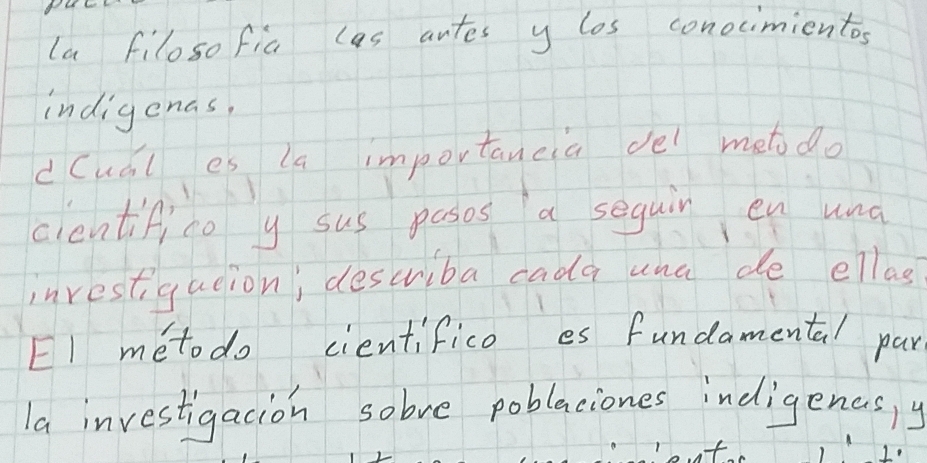 la filosofia las artes y los conocimientos
indigenas.
¿Cuál es la importancia del metodo
cientifico y sus pasos a seguir en una
investigacion; describa cada una de ellas
El método cientifico es fundamental par
la investigación sobre poblaciones indigenas, y